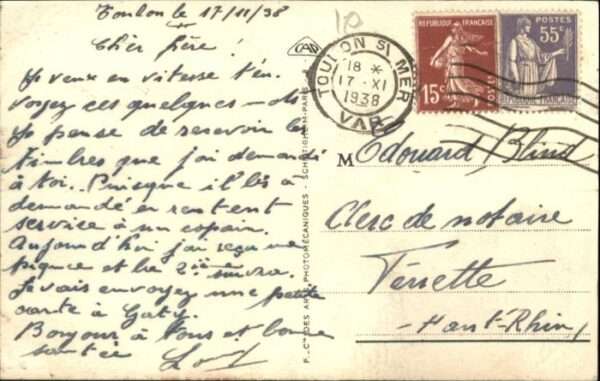 Toulon le 17/11/38
Cher frère !
Je veux en vitesse t'en
voyez ces quelques
Je pense de recevoir les
timbres que j'ai demandé
à toi. Puisque
demandé en rentent
service à un copain.
Aujourd'hui j'ai reçu ma
piqure et la 2ième suivra.
Je vais envoyez une petite
carte à Gaty.
Bonjour à tous et bonne
santée
TOULON S! MER
18 *
17 - XI
1938
VAR
REPUBLIQUE FRANÇAISE
15c
POSTES
55c
REPUBLIQUE FRANÇAISE
M Edouard Blind
Clerc de notaire
Ferrette
Haut-Rhin
DES ARTS PHOTOMÉCANIQUES - SCHILTIGHEIM-PARIS